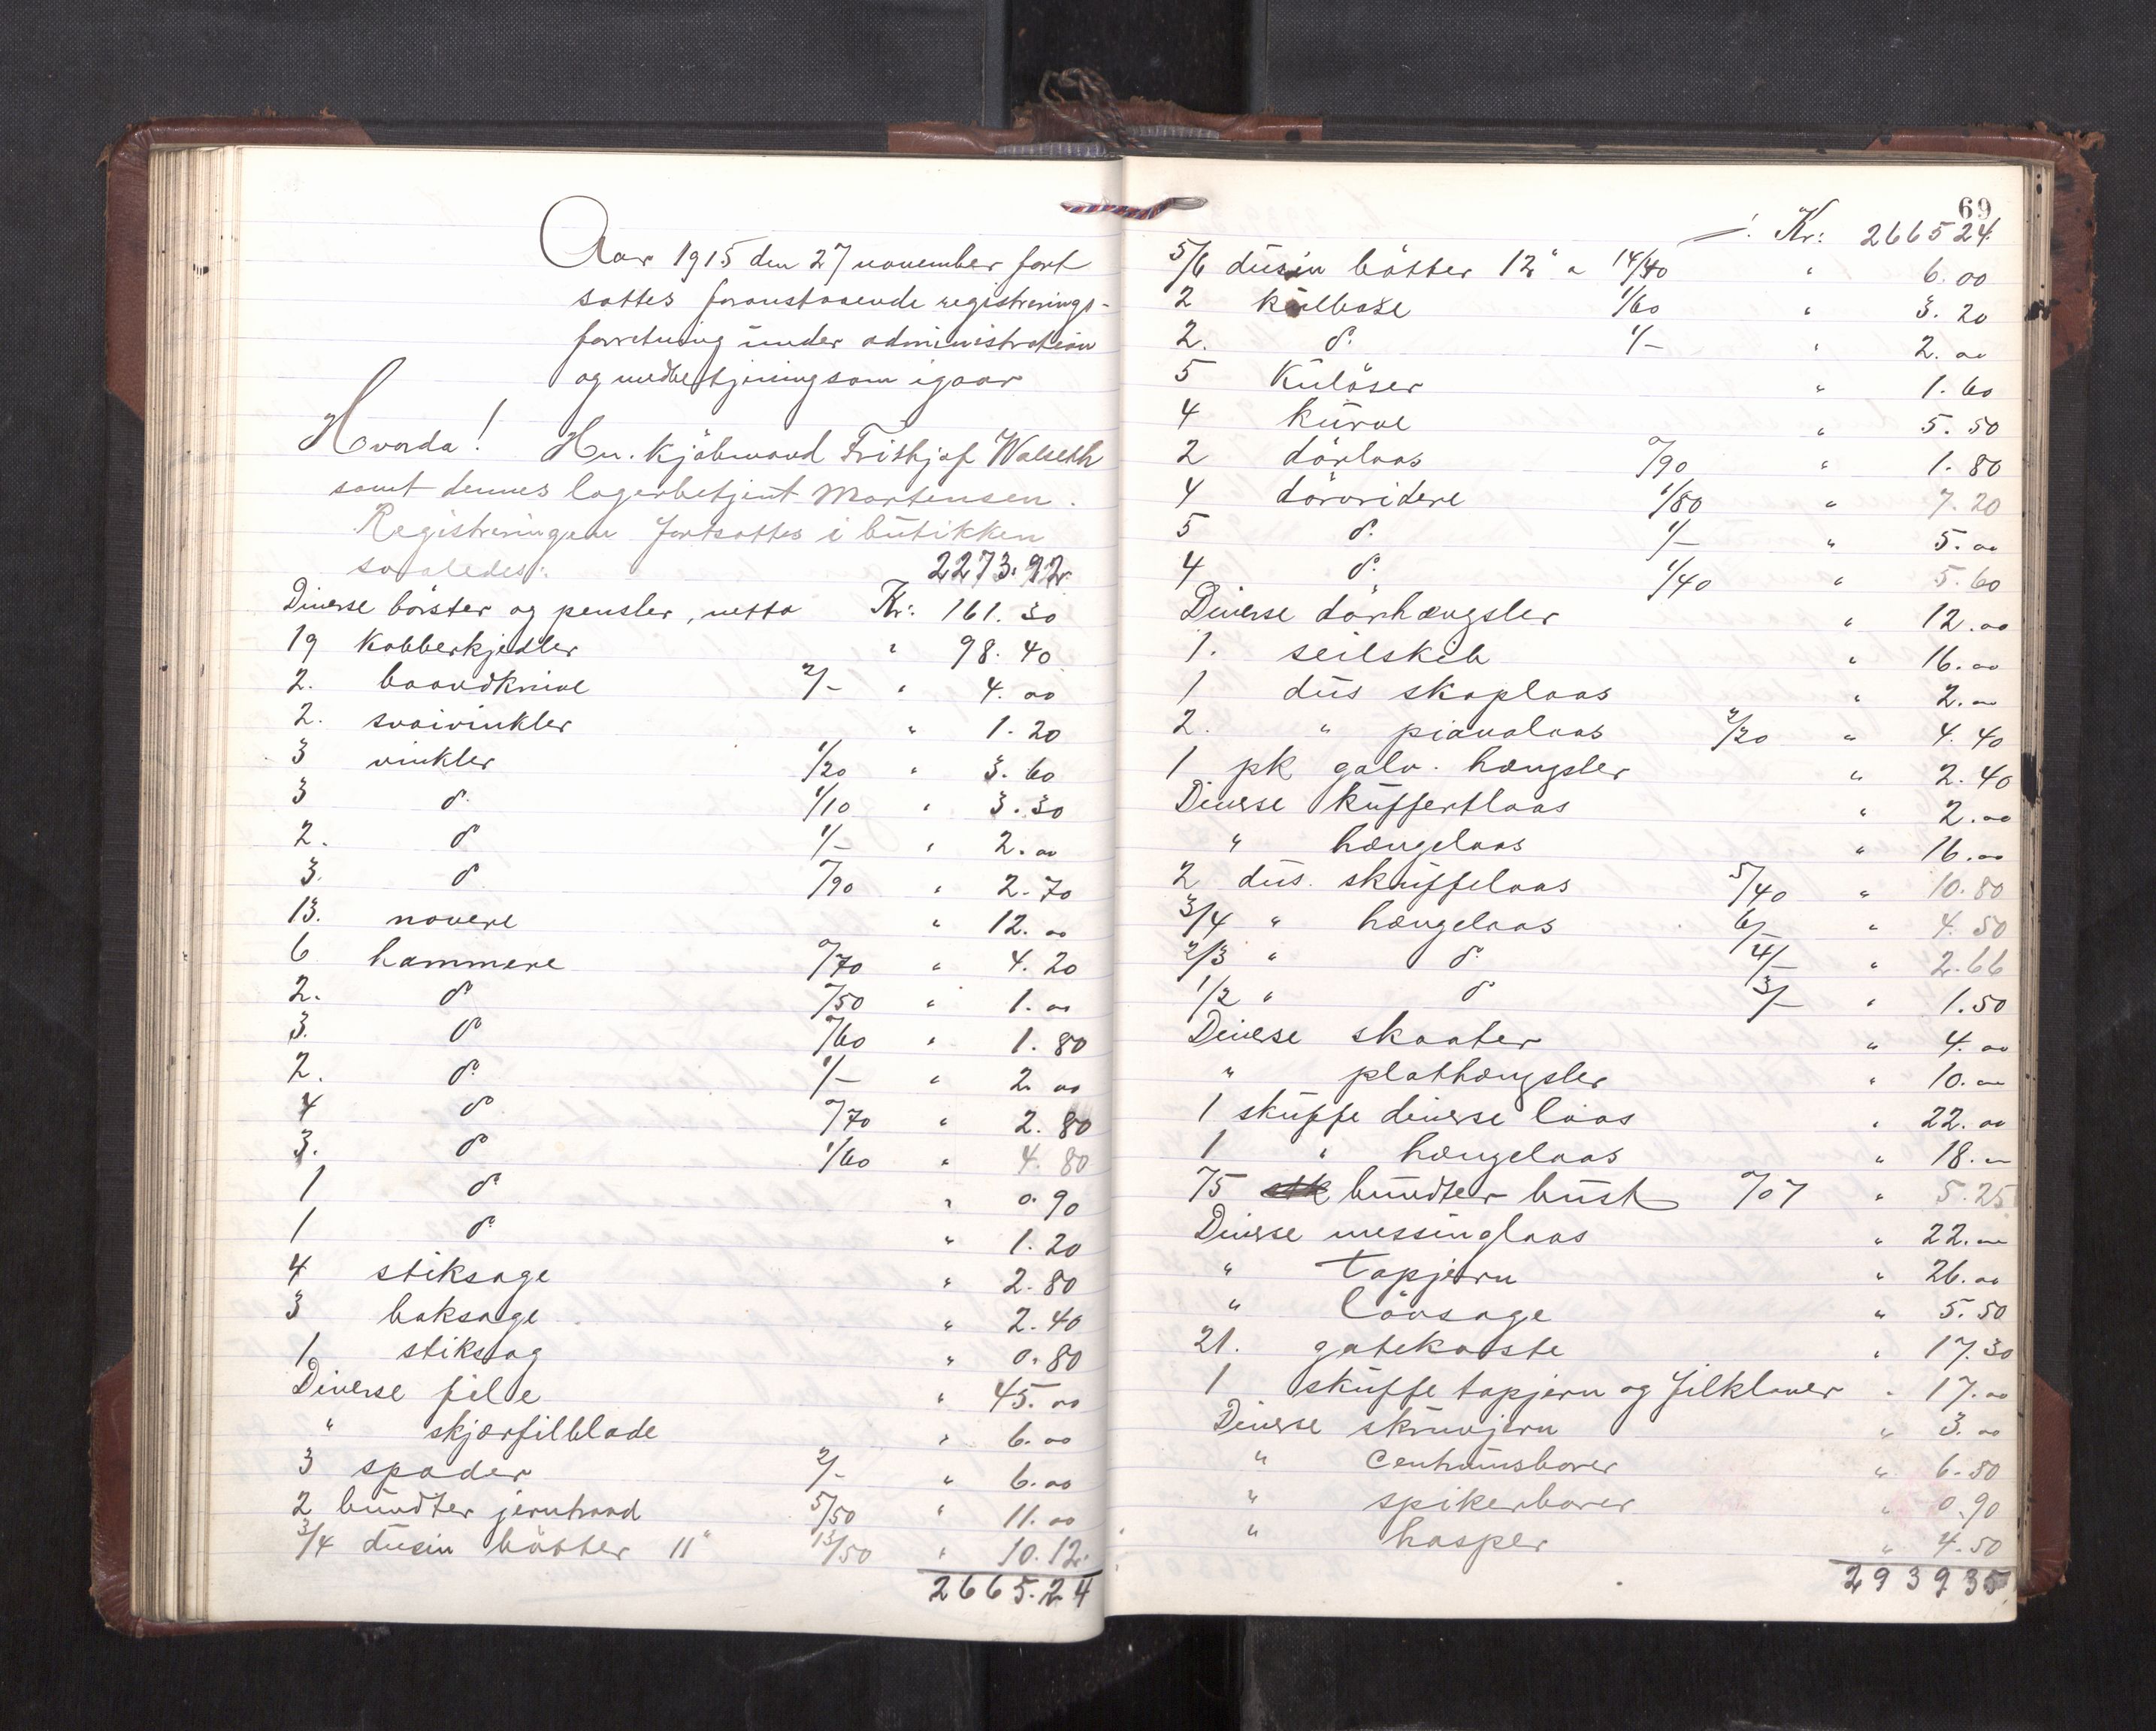 Aar 1915 den 27 november fort
sattes foranstaaende registrerings-
forretning under administration
og medbetjening som igaar
Hvorda! Hr. Kjöbmand Frithjof Walseth
samt dennes lagerbetjent Martensen.
Registreringen fortsattes i butikken
saaledes: 2273.92
Diverse börster og pensler, netto Kr: 161.30
19 kobberkjedler " 98.40
2. baandknive 2/- " 4.00
2. svaivinkler " 1.20
3 vinkler 1/20 " 3.60
3 do 1/10 " 3.30
2. do 1/- " 2.00
3. do 0/90 " 2.70
13. navere " 12.00
6 hammere 0/70 " 4.20
2. do 0/50 " 1.00
3. do 0/60 " 1.80
2. do 1/- " 2.00
4 do 0/70 " 2.80
3. do 1/60 " 4.80
1 do " 0.90
1 do " 1.20
4 stiksage " 2.80
3 baksage " 2.40
1 stiksag " 0.80
Diverse file " 45.00
" skjærfilblade " 6.00
3 spader 2/- " 6.00
2 bundter jerntraad 5/50 " 11.00
3/4 dusin bötter 11" 13/50 " 10.12
2665.24
69
Kr: 2665 24
5/6 dusin bötter 12" a 14/40 " 6.00
2 kulbose 1/60 " 3.20
2. do 1/- " 2.00
5 Kulöser " 1.60
4 kurve " 5.50
2 dörlaas 0/90 " 1.80
4 dörvridere 1/80 " 7.20
5 do 1/- " 5.00
4 do 1/40 " 5.60
Diverse dörhængsler " 12.00
1. seilskib " 16.00
1 dus skaplaas " 2.00
2. " pianolaas 2/20 " 4.40
1 pk galv. hængsler " 2.40
Diverse kuffertlaas " 2.00
" hængelaas " 16.00
2 dus. skuffelaas 5/40 " 10.80
3/4 " hængelaas 6/- " 4.50
2/3 " do 4/- " 2.66
1/2 " do 3/- " 1.50
Diverse skaater " 4.00
" plathængsler " 10.00
1 skuffe diverse laas " 22.00
1 " hængelaas " 18.00
75 bundter bust 0/07 " 5.25
Diverse messinglaas " 22.00
" tapjern " 26.00
" lövsage " 5.50
21. gatekoste " 17.30
1 skuffe tapjern og filklover " 17.00
Diverse skruvjern " 3.00
" Centrumsborer " 6.50
" spikerborer " 0.90
" hasper " 4.50
2939 35